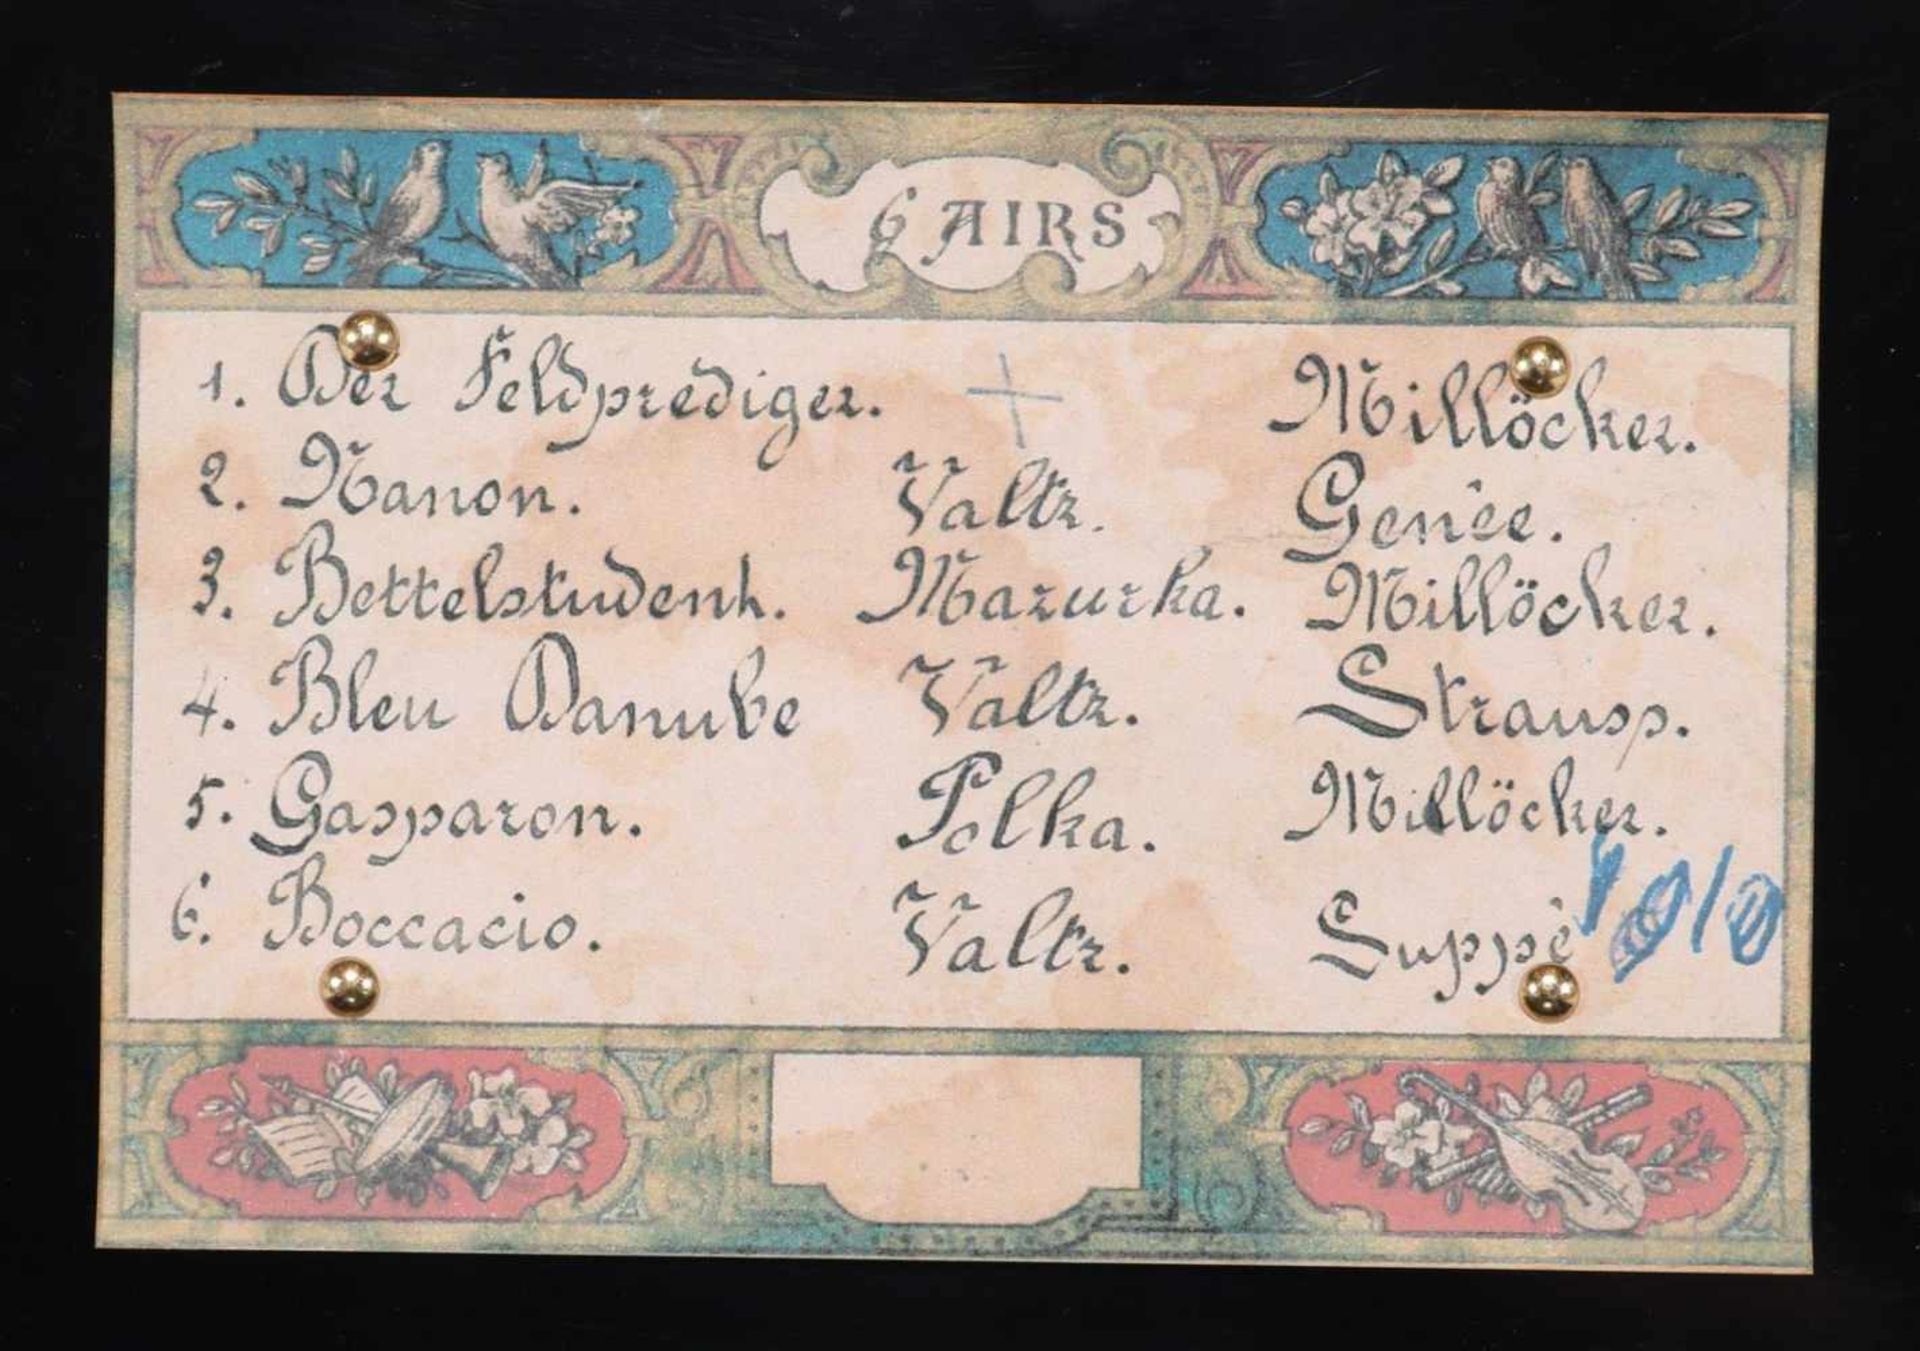 6 AIRS
1. Der Feldprediger. + Millöcker.
2. Nanon. Valtz. Genée.
3. Bettelstudent. Mazurka. Millöcker.
4. Bleu Danube Valtz. Strauss.
5. Gasparon. Polka. Millöcker.
6. Boccacio. Valtz. Suppé